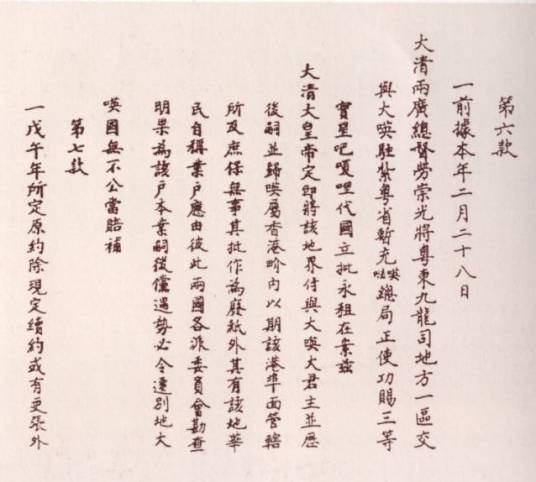 第六款
一前據本年二月二十八日
大清兩廣總督勞崇光將粵東九龍司地方一區交
與大𠸄駐紮粵省暫充𠸄㕸總局正使功賜三等
寶星吧嗄哩代國立批永租在案茲
大清大皇帝定即將該地界付與大𠸄大君主並歷
後嗣並歸𠸄屬香港畍內以期該港埠面管轄
所及庶保無事其批作為廢紙外其有該地華
民自稱業户應由彼此兩國各派委員會勘查
明果為該户本業嗣後儻遇勢必令遷別地大
𠸄國無不公當賠補
第七款
一戊午年所定原約除現定續約或有更張外